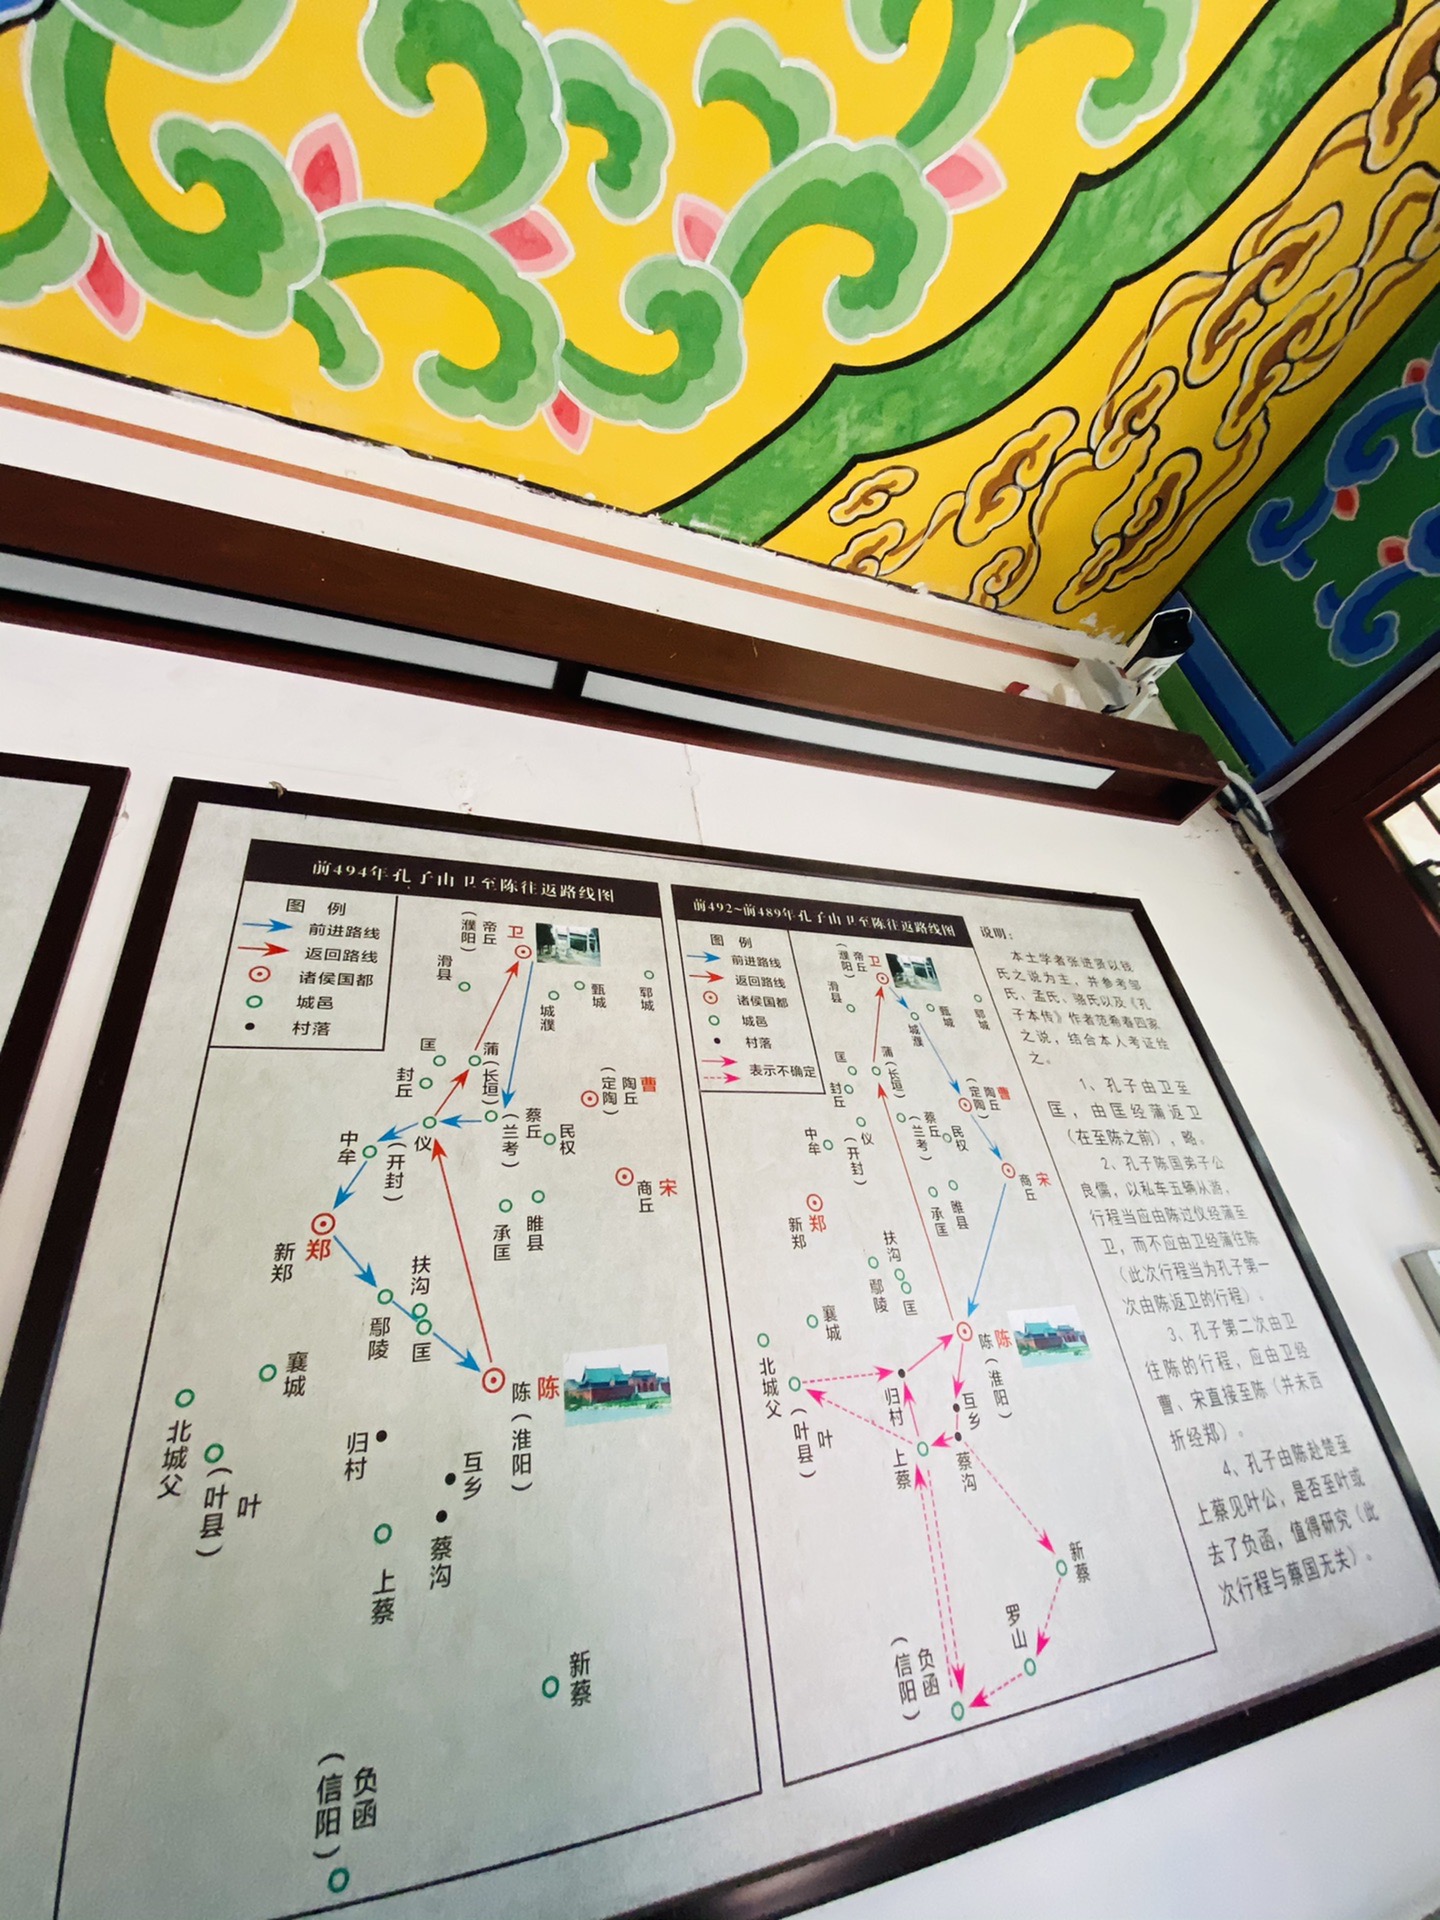 前494年孔子由卫至陈往返路线图
图 例
前进路线
返回路线
诸侯国都
城邑
村落
卫
帝丘
(濮阳)
滑县
城濮
甄城
郓城
匡
蒲
(长垣)
封丘
曹
陶丘
(定陶)
仪
(开封)
蔡丘
(兰考)
民权
中牟
宋
商丘
承匡
睢县
郑
新郑
扶沟
鄢陵
匡
襄城
陈
陈(淮阳)
北城父
叶
(叶县)
归村
互乡
蔡沟
上蔡
新蔡
负函
(信阳)
前492~前489年孔子由卫至陈往返路线图
图 例
前进路线
返回路线
诸侯国都
城邑
村落
表示不确定
卫
帝丘
(濮阳)
滑县
城濮
甄城
郓城
匡
蒲
(长垣)
封丘
曹
陶丘
(定陶)
仪
(开封)
蔡丘
(兰考)
民权
中牟
宋
商丘
承匡
睢县
郑
新郑
扶沟
鄢陵
匡
襄城
陈
陈(淮阳)
北城父
叶
(叶县)
归村
互乡
蔡沟
上蔡
新蔡
罗山
负函
(信阳)
说明:
本土学者张进贤以钱
氏之说为主,并参考邹
氏、孟氏、骆氏以及《孔
子本传》作者范希春四家
之说,结合本人考证绘
之。
1、孔子由卫至
匡,由匡经蒲返卫
(在至陈之前),略。
2、孔子陈国弟子公
良儒,以私车五辆从游,
行程当应由陈过仪经蒲至
卫,而不应由卫经蒲往陈
(此次行程当为孔子第一
次由陈返卫的行程)。
3、孔子第二次由卫
往陈的行程,应由卫经
曹、宋直接至陈(并未西
折经郑)。
4、孔子由陈赴楚至
上蔡见叶公,是否至叶或
去了负函,值得研究(此
次行程与蔡国无关)。